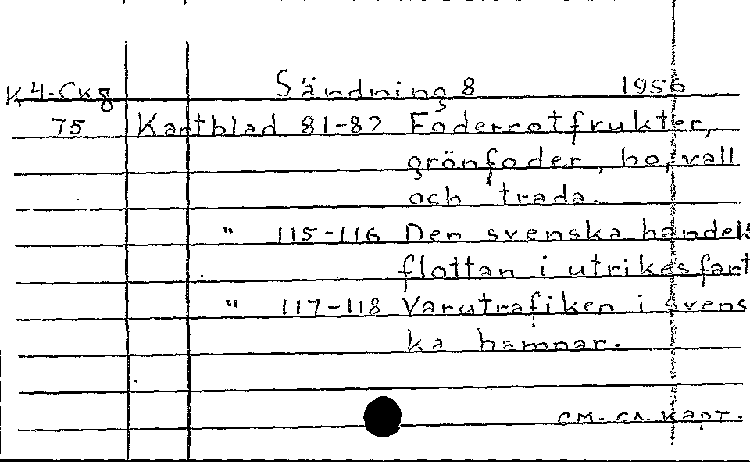 K4-CK8 Sändning 8 1956
75 Kartblad 81-82 Foderrotfrukter,
grönfoder, ho, vall
och träda.
" 115-116 Den svenska handels
flottan i utrikesfart
" 117-118 Varutrafiken i svens
ka hamnar.
KART.